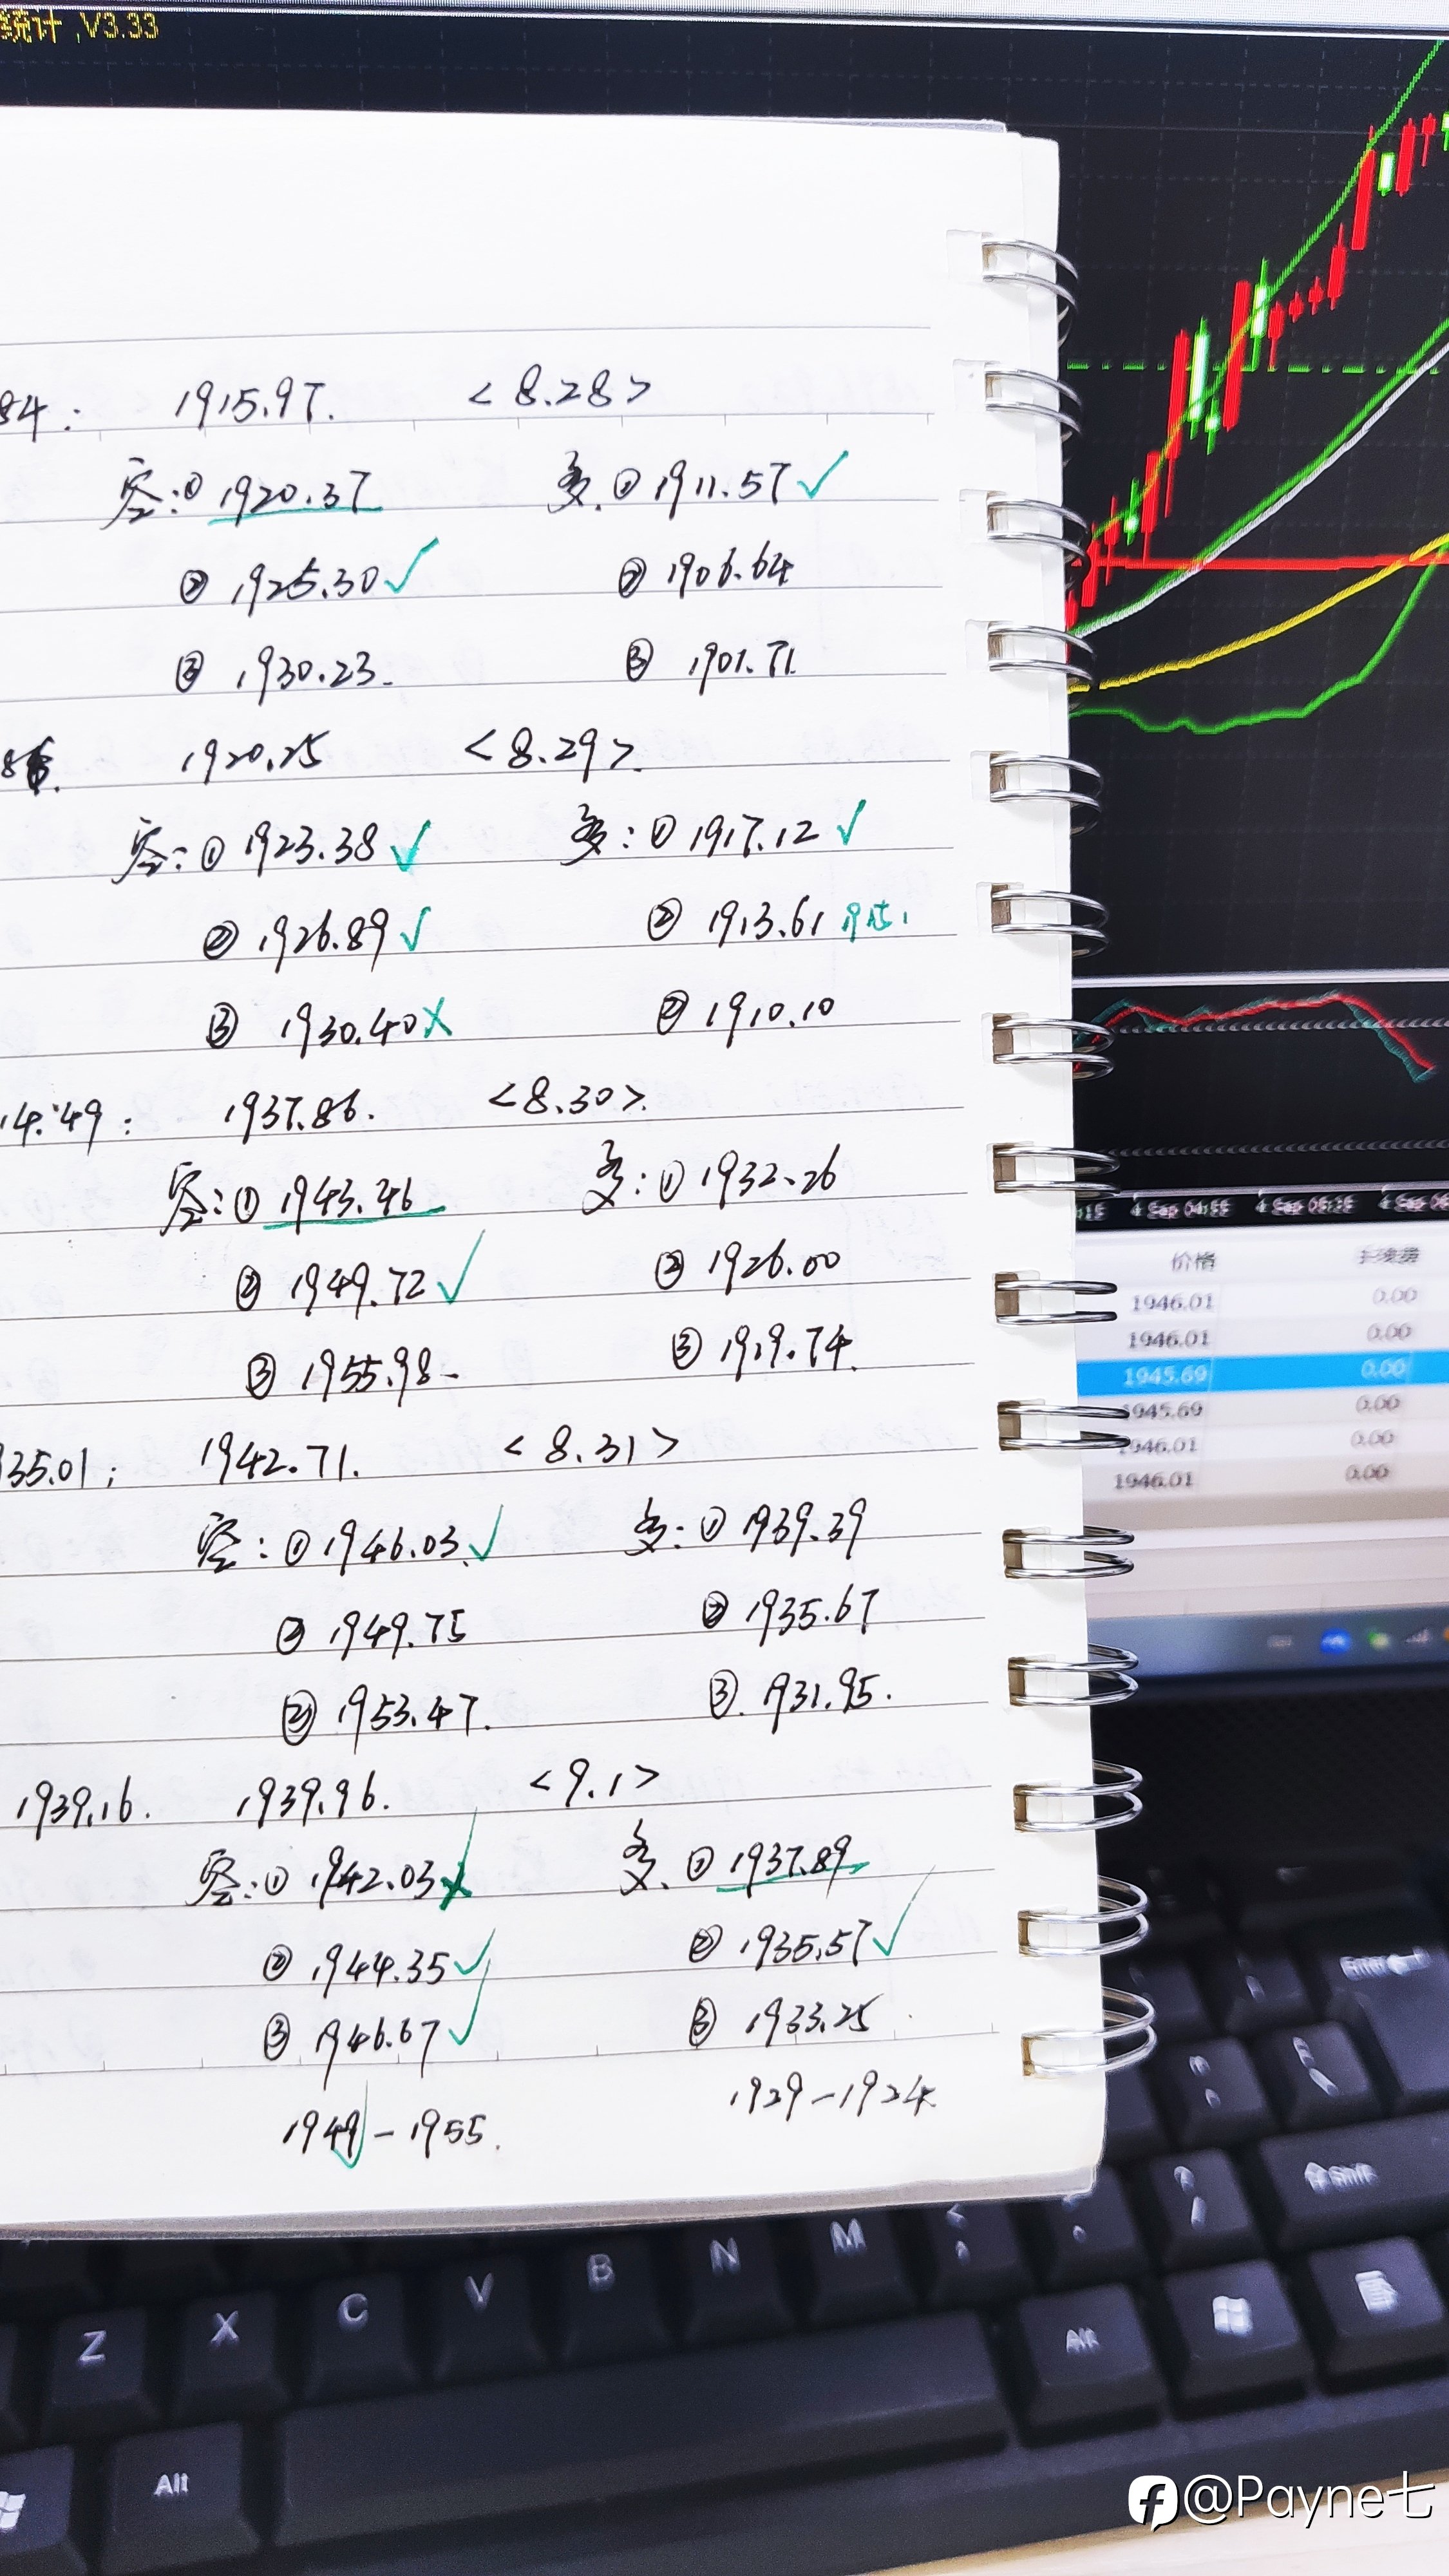 统计 ,V3.33
84: 1915.97. <8.28>
空:① 1920.37 多.① 1911.57 ✓
② 1925.30 ✓ ② 1906.64
③ 1930.23. ③ 1901.71
1920.25 <8.29>.
空:① 1923.38 ✓ 多:① 1917.12 ✓
② 1926.89 ✓ ② 1913.61
③ 1930.40 X ③ 1910.10
14.49: 1937.86. <8.30>.
空:① 1943.46 多:① 1932.26
② 1949.72 ✓ ② 1926.00
③ 1955.98- ③ 1919.74.
35.01: 1942.71. <8.31>
空:① 1946.03. ✓ 多:① 1939.39
② 1949.75 ② 1935.67
③ 1953.47. ③. 1931.95.
1939.16. 1939.96. <9.1>
空:① 1942.03 X 多.① 1937.89
② 1944.35 ✓ ② 1935.57 ✓
③ 1946.67 ✓ ③ 1933.25
1949-1955. 1929-1924
:15 4 Sep 04:55 4 Sep 05:25 4 Sep 0
价格 手续费
1946.01 0.00
1946.01 0.00
1945.69 0.00
1945.69 0.00
1946.01 0.00
1946.01 0.00
Enter
Shift
Z X C V B N M
Alt Alt
@Payne七